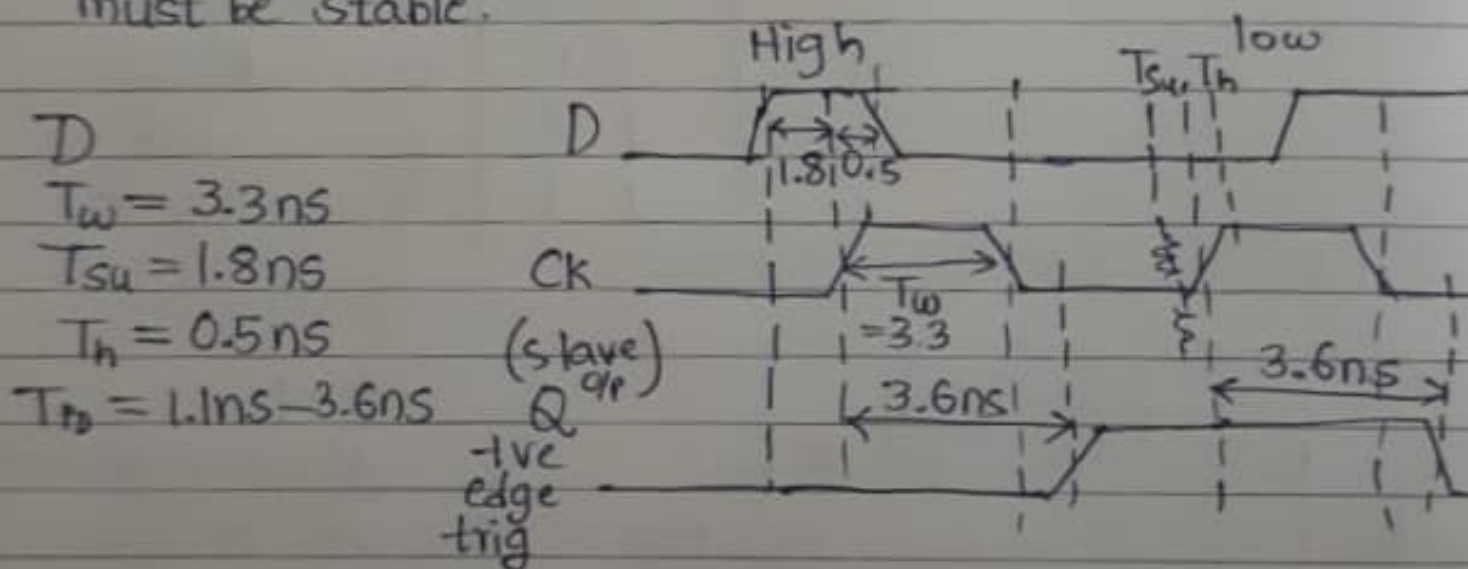 must be stable.
High
low
Tsu Th
D
D
1.8 0.5
Tw = 3.3ns
Tsu = 1.8ns
CK
Tw
=3.3
Th = 0.5ns
(slave)
o/p
3.6ns
TPD = 1.1ns-3.6ns
Q
3.6ns
-ve
edge
trig